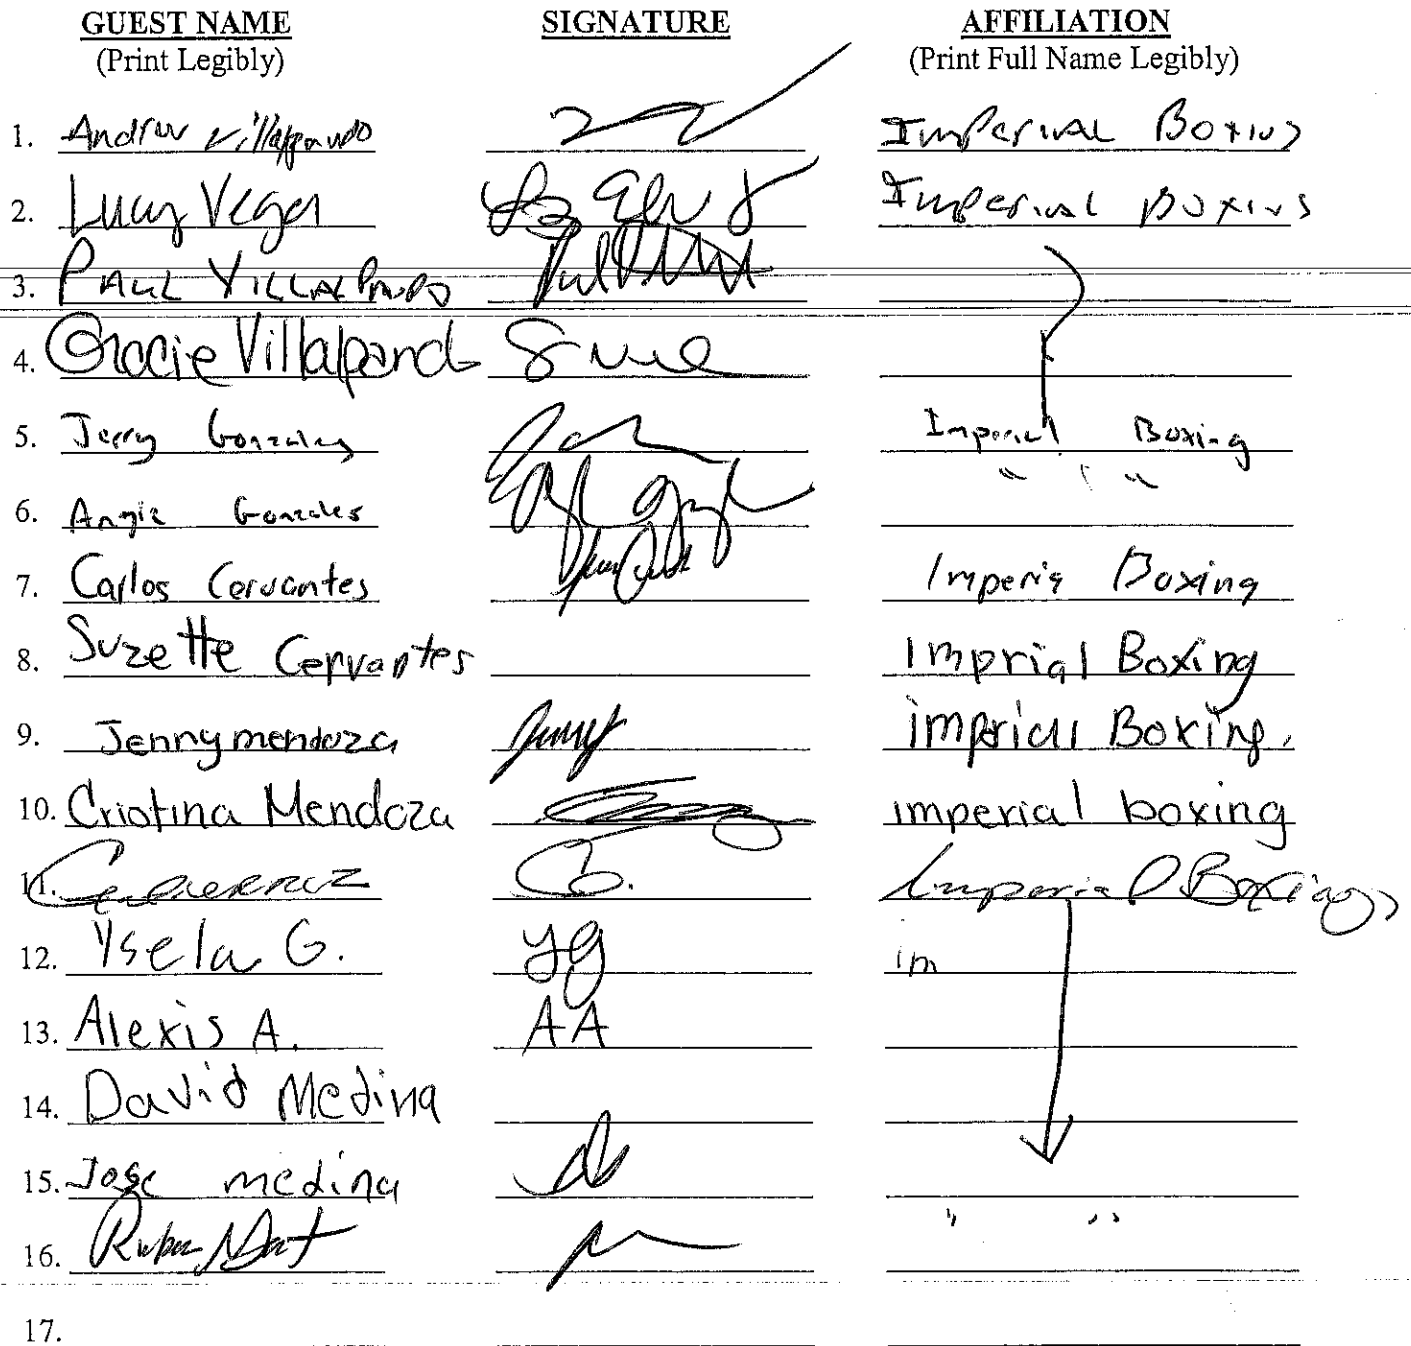 GUEST NAME SIGNATURE AFFILIATION
(Print Legibly) (Print Full Name Legibly)
1. Andrew Villalpando Imperial Boxing
2. Lucy Vega Imperial Boxing
3. PAUL VILLALPANDO
4. Gracie Villalpand
5. Jerry Gonzales Imperial Boxing
" "
6. Angie Gonzales
7. Carlos Cervantes Imperia Boxing
8. Suzette Cervantes Imprial Boxing
9. Jenny mendoza imprial Boxing.
10. Cristina Mendoza imperial boxing
11. Imperial Boxing
12. Ysela G. yg im
13. Alexis A. AA
14. David Medina
15. Jose medina
" "
16. Ruben
17.